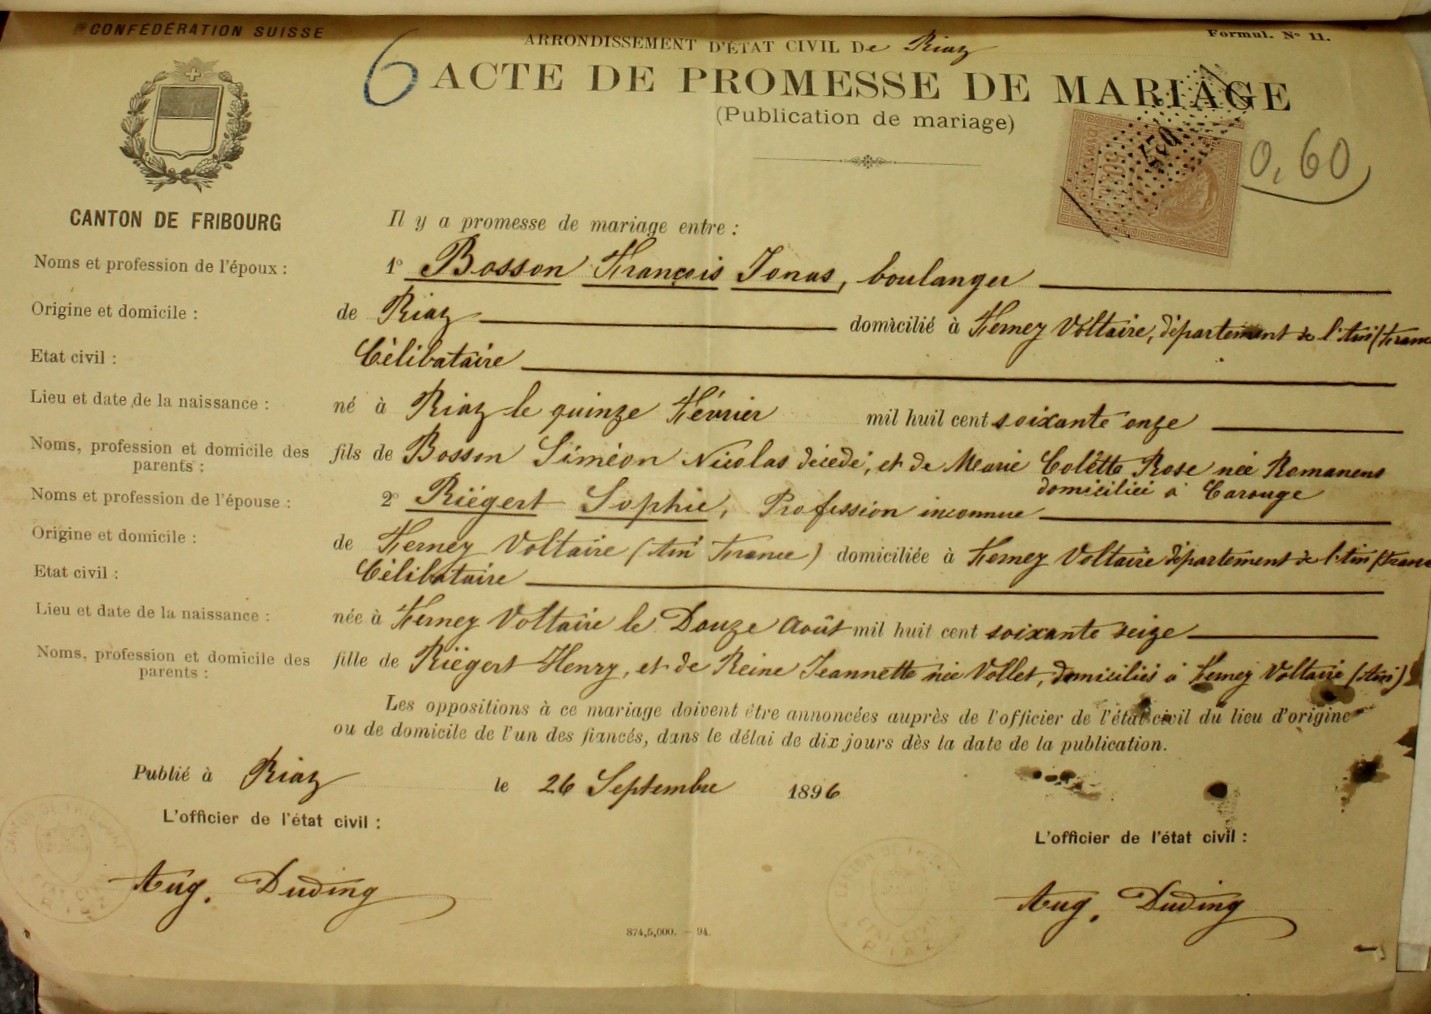 CONFÉDÉRATION SUISSE
ARRONDISSEMENT D'ÉTAT CIVIL De Riaz
Formul. Nº 11.
6
ACTE DE PROMESSE DE MARIAGE
(Publication de mariage)
0,60
CANTON DE FRIBOURG
Il y a promesse de mariage entre :
Noms et profession de l'époux : 1º Bosson François Jonas, boulanger
Origine et domicile : de Riaz domicilié à Ferney Voltaire, département de l'Ain (France
Etat civil : Célibataire
Lieu et date de la naissance : né à Riaz le quinze Février mil huit cent soixante onze
Noms, profession et domicile des parents : fils de Bosson Siméon Nicolas décédé, et de Marie Colètte Rose née Romanens
domiciliée à Carouge
Noms et profession de l'épouse : 2º Riëgert Sophie, Profession inconnue
Origine et domicile : de Ferney Voltaire (Ain France) domiciliée à Ferney Voltaire département de l'Ain (France
Etat civil : Célibataire
Lieu et date de la naissance : née à Ferney Voltaire le Douze Août mil huit cent soixante seize
Noms, profession et domicile des parents : fille de Riëgert Henry, et de Reine Jeannette née Vollet, domiciliés à Ferney Voltaire (Ain)
Les oppositions à ce mariage doivent être annoncées auprès de l'officier de l'état civil du lieu d'origine
ou de domicile de l'un des fiancés, dans le délai de dix jours dès la date de la publication.
Publié à Riaz le 26 Septembre 1896
L'officier de l'état civil : L'officier de l'état civil :
Aug. Duding Aug. Duding
874,5,000. — 94.